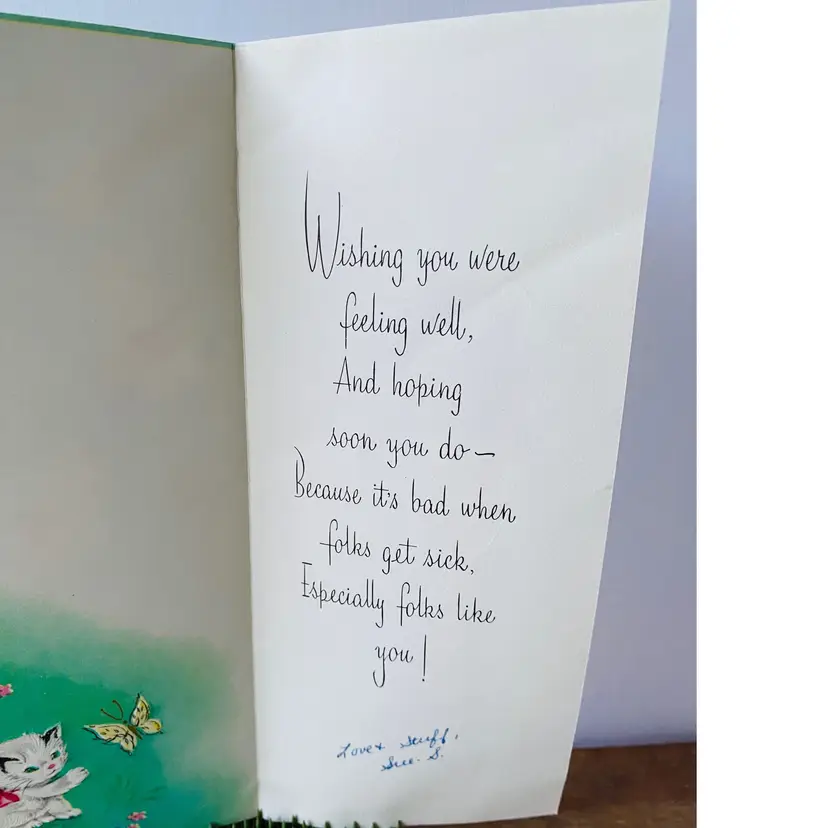 Wishing you were
feeling well,
And hoping
soon you do—
Because it's bad when
folks get sick,
Especially folks like
you!
Love & Stuff,
Sue. S.